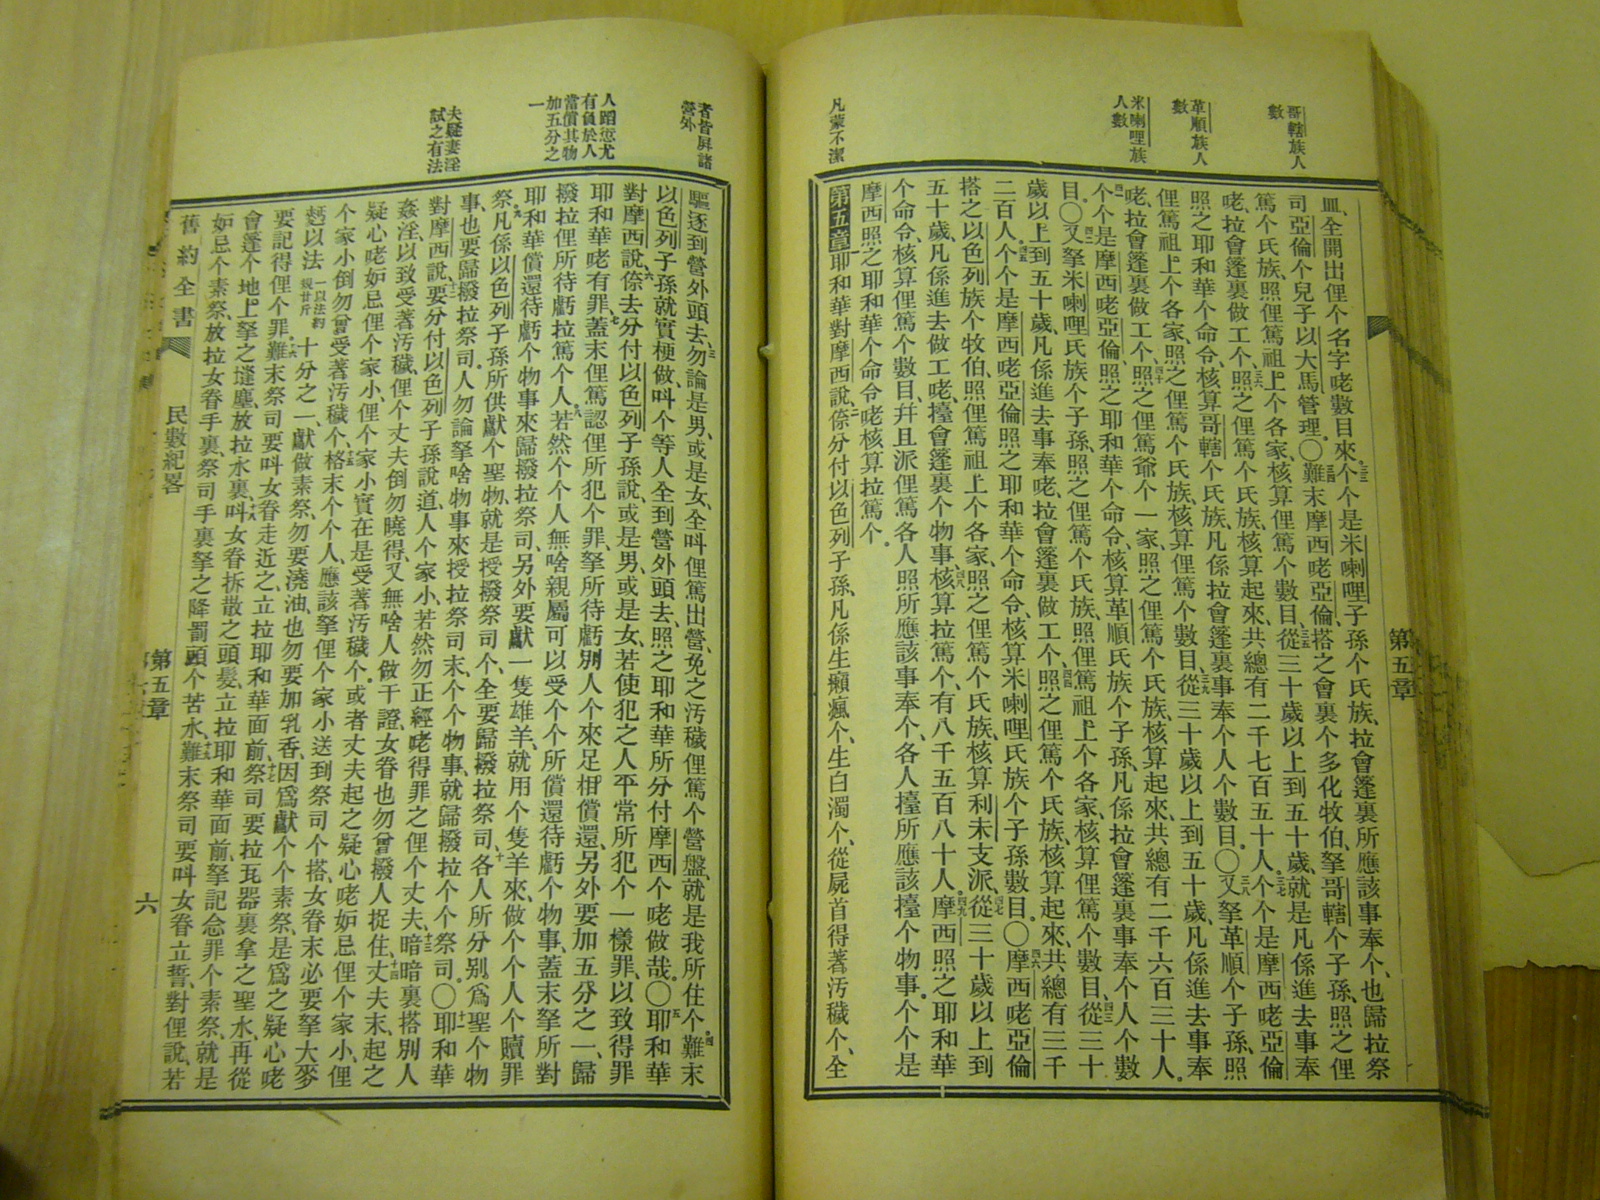 哥轄族人
數
革順族人
數
米喇哩族
人數
凡蒙不潔
皿、全開出俚个名字咾數目來、个个是米喇哩子孫个氏族、拉會篷裏所應該事奉个、也歸拉祭
司亞倫个兒子以大馬管理。〇難末摩西咾亞倫、搭之會裏个多化牧伯、拏哥轄个子孫、照之俚
篤个氏族、照俚篤祖上个各家、核算俚篤个數目、從三十歲以上到五十歲、就是凡係進去事奉
咾、拉會篷裏做工个、照之俚篤个氏族、核算起來、共總有二千七百五十人。个个是摩西咾亞倫
照之耶和華个命令、核算哥轄个氏族、凡係拉會篷裏事奉个人个數目。〇又拏革順个子孫、照
俚篤祖上个各家、照之俚篤个氏族、核算俚篤个數目、從三十歲以上到五十歲、凡係進去事奉
咾、拉會篷裏做工个、照之俚篤爺个一家、照之俚篤个氏族、核算起來、共總有二千六百三十人。
个个是摩西咾亞倫、照之耶和華个命令、核算革順氏族个子孫、凡係拉會篷裏事奉个人个數
目。〇又拏米喇哩氏族个子孫、照之俚篤个氏族、照俚篤祖上个各家、核算俚篤个數目、從三十
歲以上到五十歲、凡係進去事奉咾、拉會篷裏做工个、照之俚篤个氏族、核算起來、共總有三千
二百人。个个是摩西咾亞倫照之耶和華个命令、核算米喇哩氏族个子孫數目。〇摩西咾亞倫
搭之以色列族个牧伯、照俚篤祖上个各家、照之俚篤个氏族核算利未支派、從三十歲以上到
五十歲、凡係進去做工咾、擡會篷裏个物事、核算拉篤个、有八千五百八十人。摩西照之耶和華
个命令、核算俚篤个數目、幷且派俚篤各人照所應該事奉个、各人擡所應該擡个物事。个个是
摩西照之耶和華个命令咾核算拉篤个。
第五章 耶和華對摩西說、倷分付以色列子孫、凡係生癩瘋个、生白濁个、從屍首得著汚穢个、全
第五章
者皆屛諸
營外
人蹈愆尤
有負於人
當償其物
加五分之
一
夫疑妻淫
試之有法
驅逐到營外頭去、勿論是男、或是女、全呌俚篤出營、免之汚穢俚篤个營盤、就是我所住个。難末
以色列子孫就實梗做、呌个等人全到營外頭去、照之耶和華所分付摩西个咾做哉。〇耶和華
對摩西說、倷去分付以色列子孫說、或是男、或是女、若使犯之人平常所犯个一樣罪、以致得罪
耶和華咾有罪、蓋末俚篤認俚所犯个罪、拏所待虧別人个來足相償還、另外要加五分之一、歸
撥拉俚所待虧拉篤个人。若然个个人無啥親屬可以受个个所償還待虧个物事、蓋末拏所對
耶和華償還待虧个物事來歸撥拉祭司、另外要獻一隻雄羊、就用个隻羊來、做个个人个贖罪
祭。凡係以色列子孫所供獻个聖物、就是授撥祭司个、全要歸撥拉祭司、各人所分別爲聖个物
事、也要歸撥拉祭司。人勿論拏啥物事來授拉祭司末、个个物事、就歸撥拉个个祭司。〇耶和華
對摩西說、要分付以色列子孫說道、人个家小、若然勿正經咾得罪之俚个丈夫、暗暗裏搭別人
姦淫、以致受著汚穢、俚个丈夫倒勿曉得、又無啥人做干證、女眷也勿曾撥人捉住、丈夫末、起之
疑心咾妬忌俚个家小、俚个家小實在是受著汚穢个。或者丈夫起之疑心咾妬忌俚个家小、俚
个家小倒勿曾受著汚穢个、格末个个人、應該拏俚个家小送到祭司个搭、女眷末必要拏大麥
麪以法 一以法約規廿斤 十分之一、獻做素祭、勿要澆油、也勿要加乳香、因爲獻个个素祭、是爲之疑心咾
要記得俚个罪。難末祭司要呌女眷走近之、立拉耶和華面前、祭司要拉瓦器裏拿之聖水、再從
會篷个地上拏之塳塵、放拉水裏、呌女眷拆散之頭髮、立拉耶和華面前、拏記念罪个素祭、就是
妬忌个素祭、放拉女眷手裏、祭司手裏拏之降罰頭个苦水、難末祭司要呌女眷立誓、對俚說、若
舊約全書
民數紀畧
第五章
六